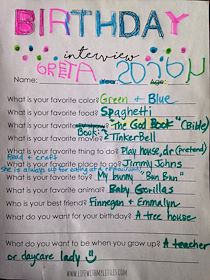 BIRTHDAY
interview
GRETA 2020
Name: Age:
What is your favorite color? Green + Blue
What is your favorite food? Spaghetti
What is your favorite Book: "The God Book" (Bible)
What is your favorite movie? Tinker Bell
What is your favorite thing to do? Play house, dr (pretend)
Read + craft
What is your favorite place to go? Jimmy Johns
She is always up for eating at a restaurant!
What is your favorite toy? My bunny "Bun Bun"
What is your favorite animal? Baby Gorillas
Who is your best friend? Finnegan + Emmalyn
What do you want for your birthday? A tree house
What do you want to be when you grow up? A teacher
or daycare lady!!